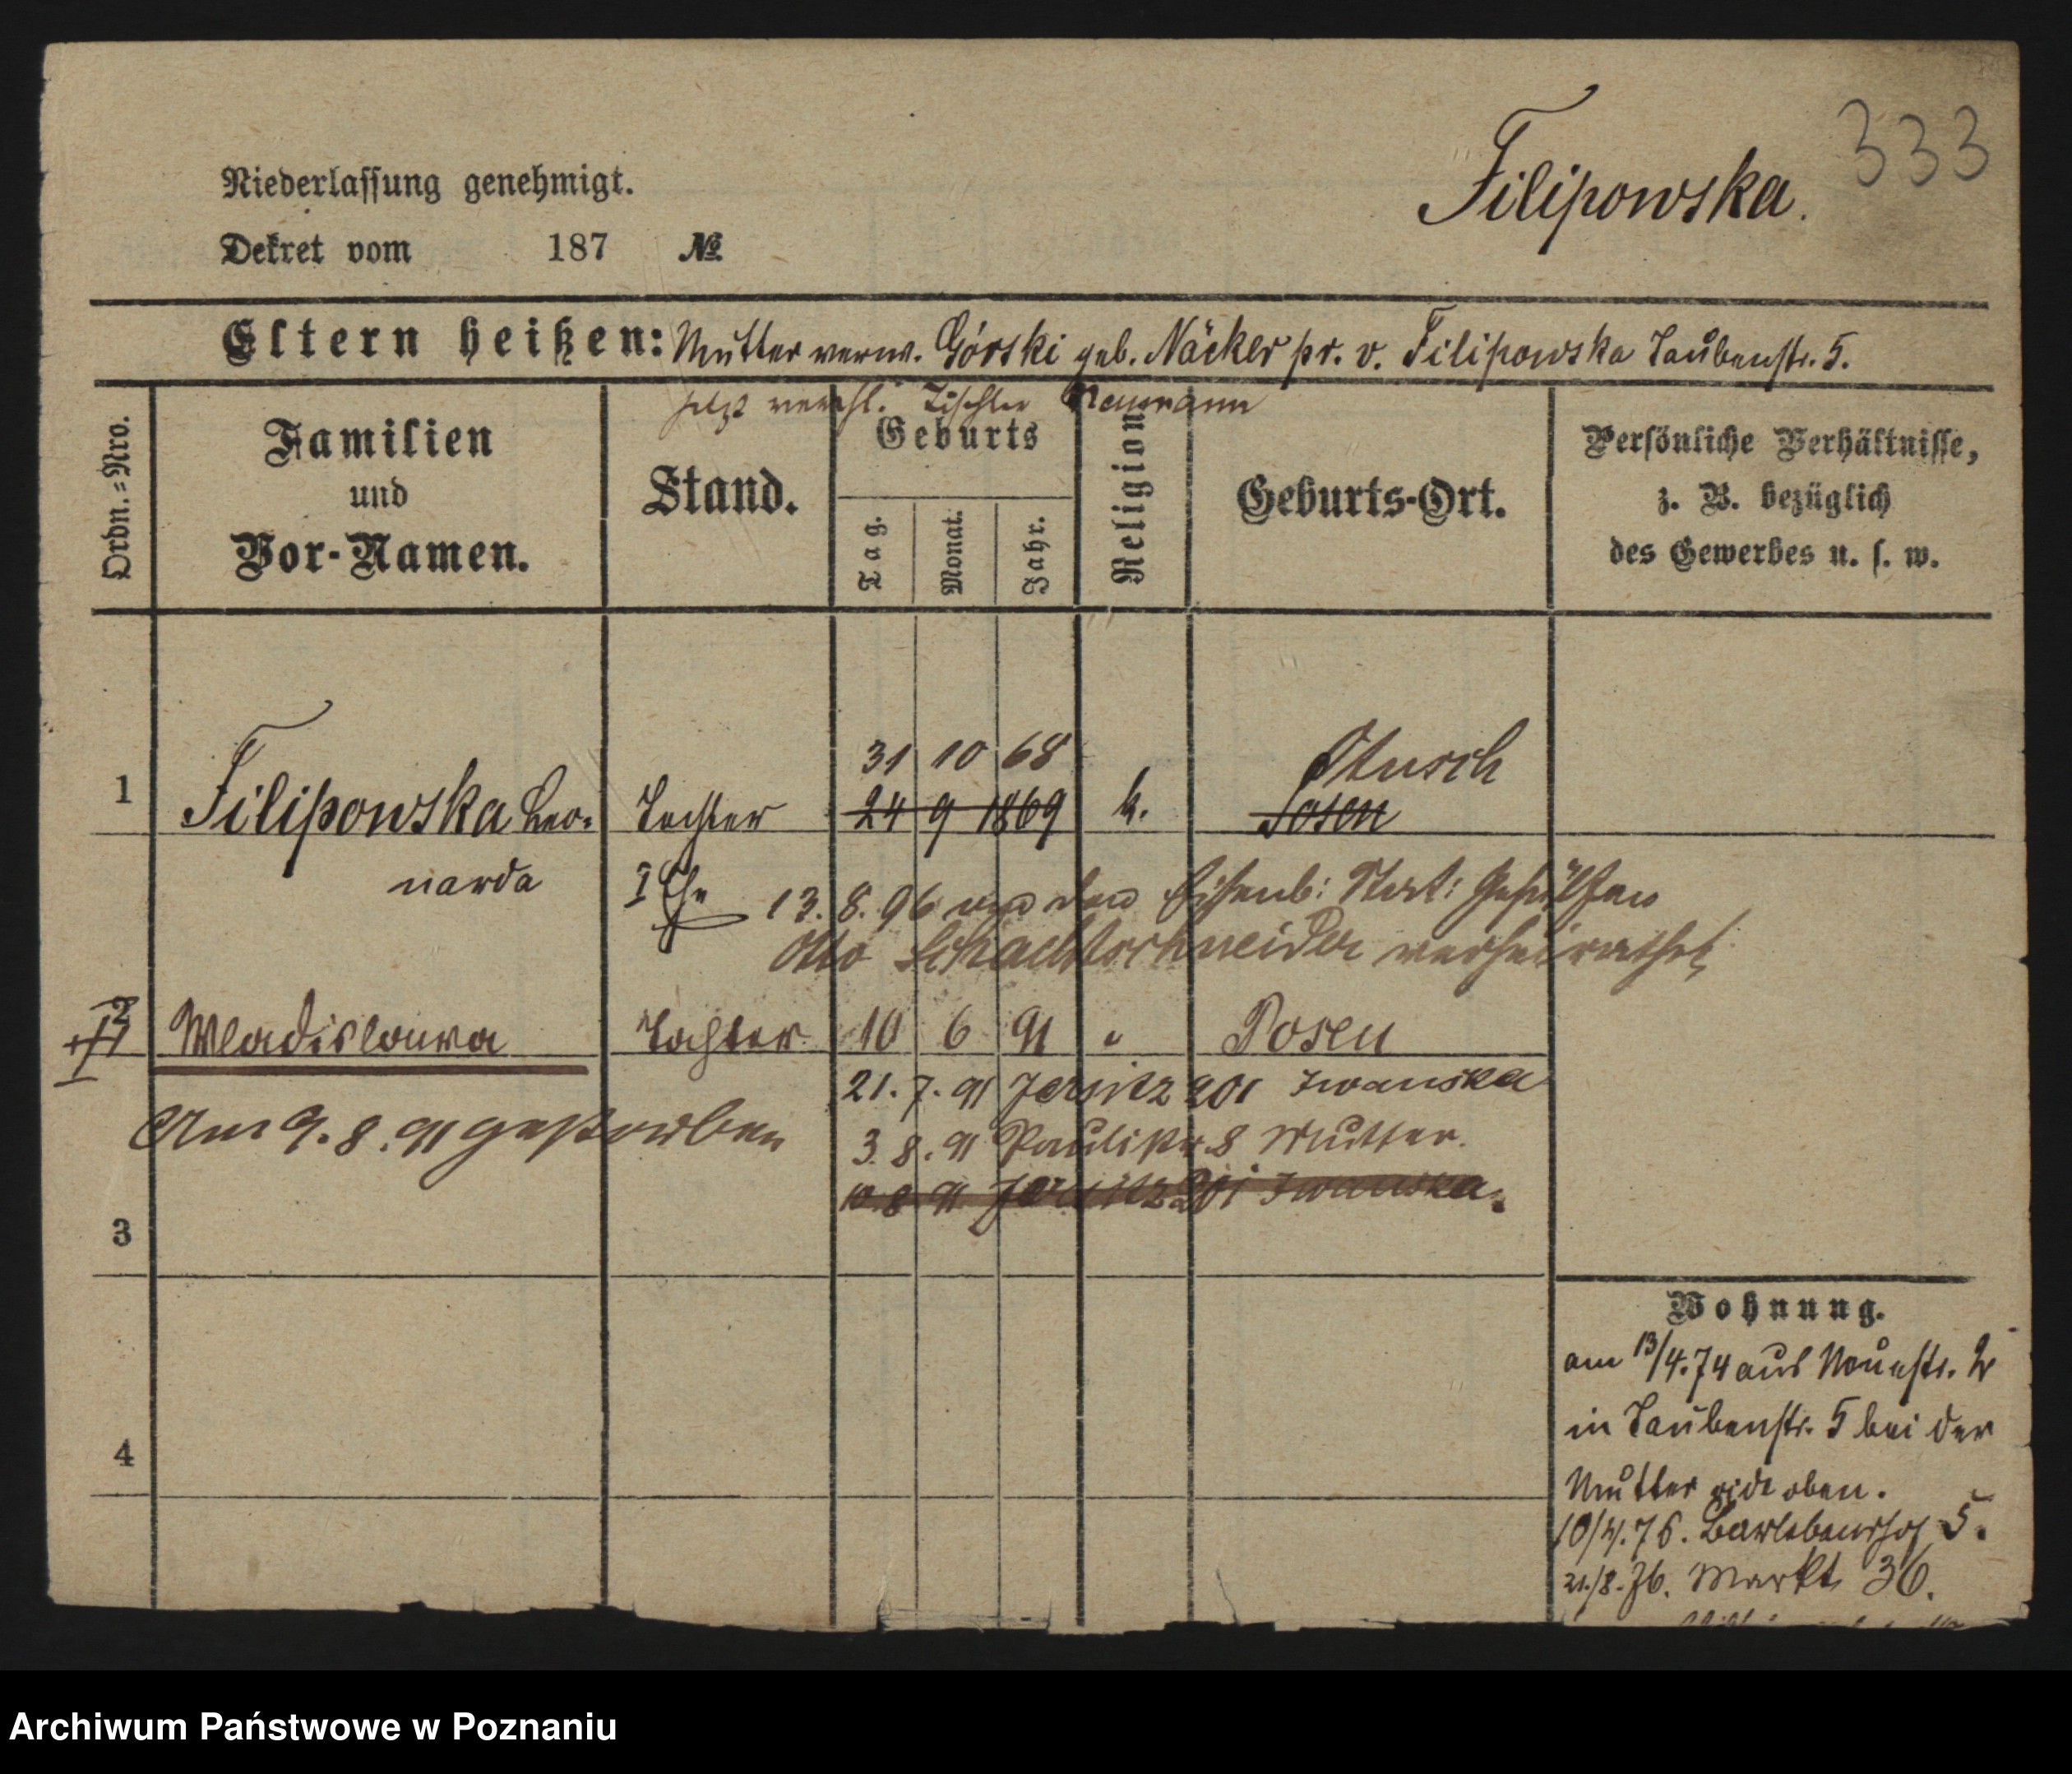 333
Filipowska.
Niederlassung genehmigt.
Dekret vom 187 №
Eltern heißen: Mutter verw. Górski geb. Näcker pr. v. Filipowska Taubenstr. 5.
jetzt verehl. Tischler Neumann
Ordn.=Nro.
Familien
und
Vor-Namen.
Stand.
Geburts
Tag.
Monat.
Jahr.
Religion
Geburts-Ort.
Persönliche Verhältnisse,
z. B. bezüglich
des Gewerbes u. s. w.
31 10 68
1 Filipowska Leo- Tochter 24 9 1869 k. Posen
narda
I Ehe 13. 8. 96 Eisenb: Gehülfen
Otto Schachtschneider verheirathet
2 Wladislouwa Tochter 10 6 91 " Posen
21. 7. 91 Jersitz 201 Iwanska
Am 9. 8. 91 gestorben
3. 8. 91 Paulikr. 8 Mutter.
10. 8. 91 Jersitz 201 Iwanska.
3
4
Wohnung.
am 13/4. 74 aus
in Taubenstr. 5 bei der
Mutter vide oben.
10/4. 76. Barlebenshof 5.
21./8. 76. Markt 36.
Archiwum Państwowe w Poznaniu